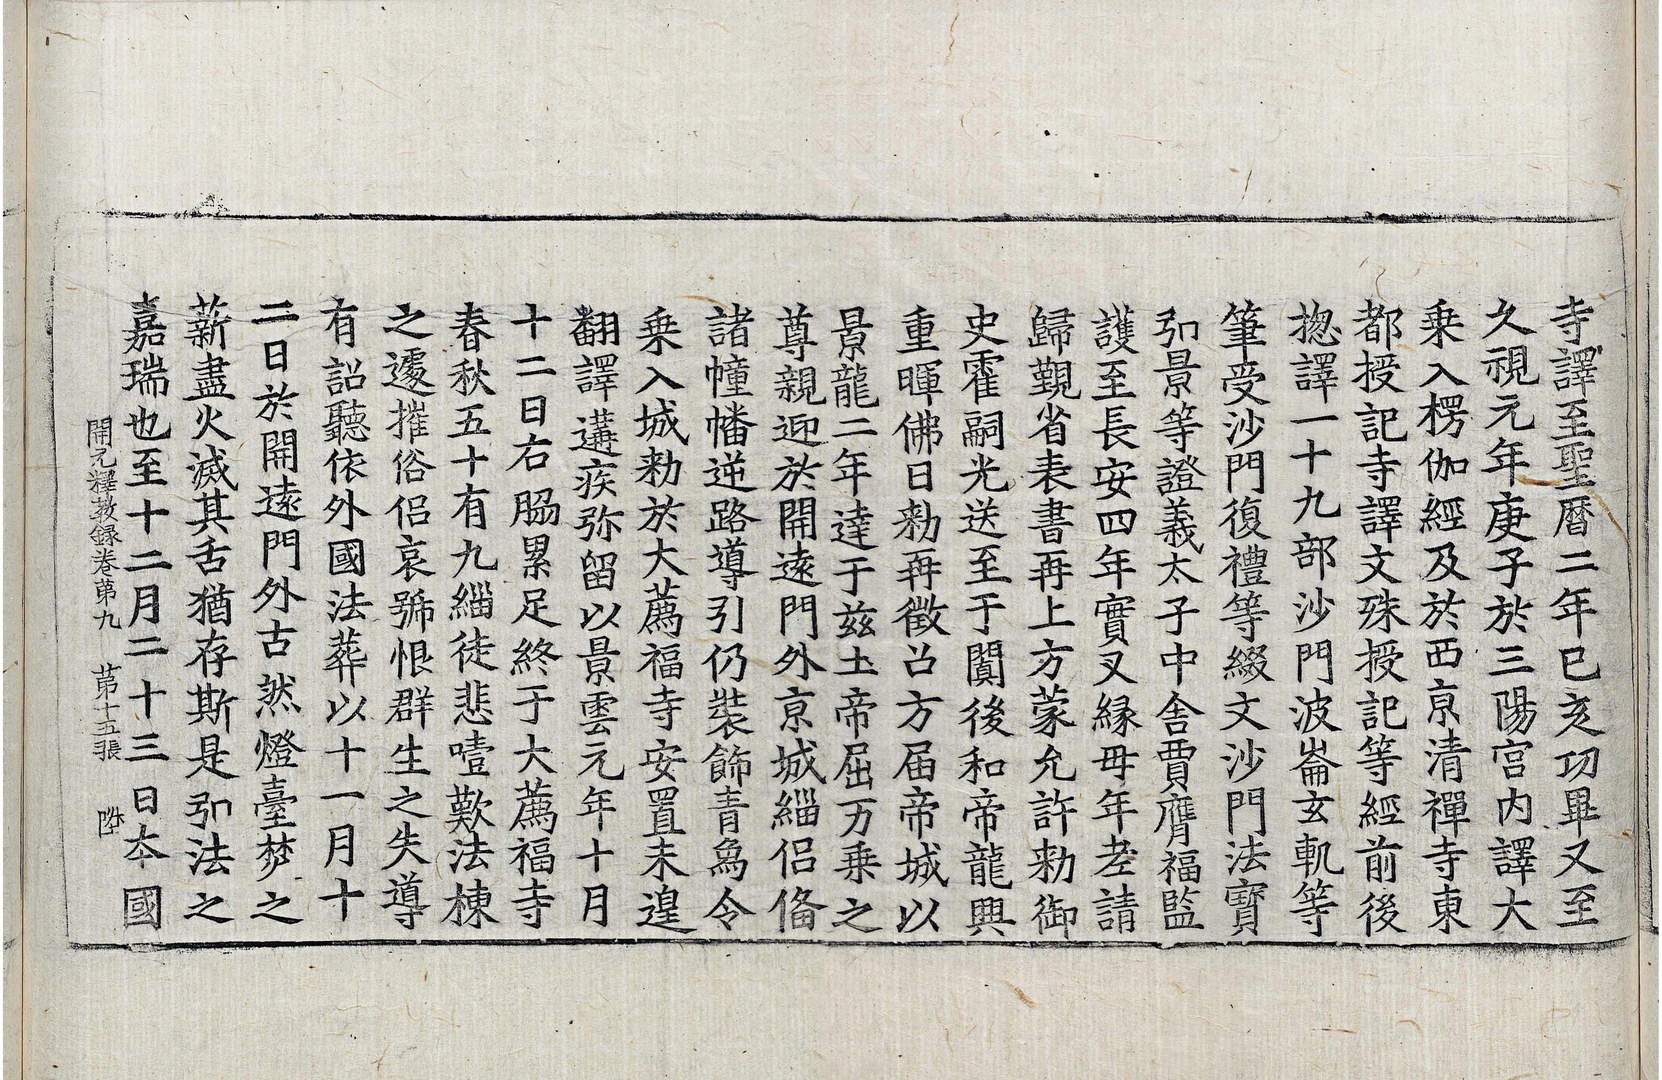 寺譯至聖曆二年己亥功畢又至
久視元年庚子於三陽宮内譯大
乗入楞伽經及於西京清禪寺東
都授記寺譯文殊授記等經前後
揔譯一十九部沙門波崙玄軌等
筆受沙門復禮等綴文沙門法寶
弘景等證義太子中舍賈膺福監
護至長安四年實叉縁母年老請
歸覲省表書再上方蒙允許勑御
史霍嗣光送至于闐後和帝龍興
重暉佛日勑再徵召方届帝城以
景龍二年達于茲土帝屈万乗之
尊親迎於開遠門外京城緇侶俻
諸幢幡逆路導引仍裝飾青象令
乗入城勑於大薦福寺安置未遑
翻譯遘疾弥留以景雲元年十月
十二日右脇累足終于大薦福寺
春秋五十有九緇徒悲噎歎法棟
之遽摧俗侶哀號恨群生之失導
有詔聽依外國法葬以十一月十
二日於開遠門外古然燈臺焚之
薪盡火滅其舌猶存斯是弘法之
嘉瑞也至十二月二十三日本國
開元釋教録卷第九　第十五張　陞